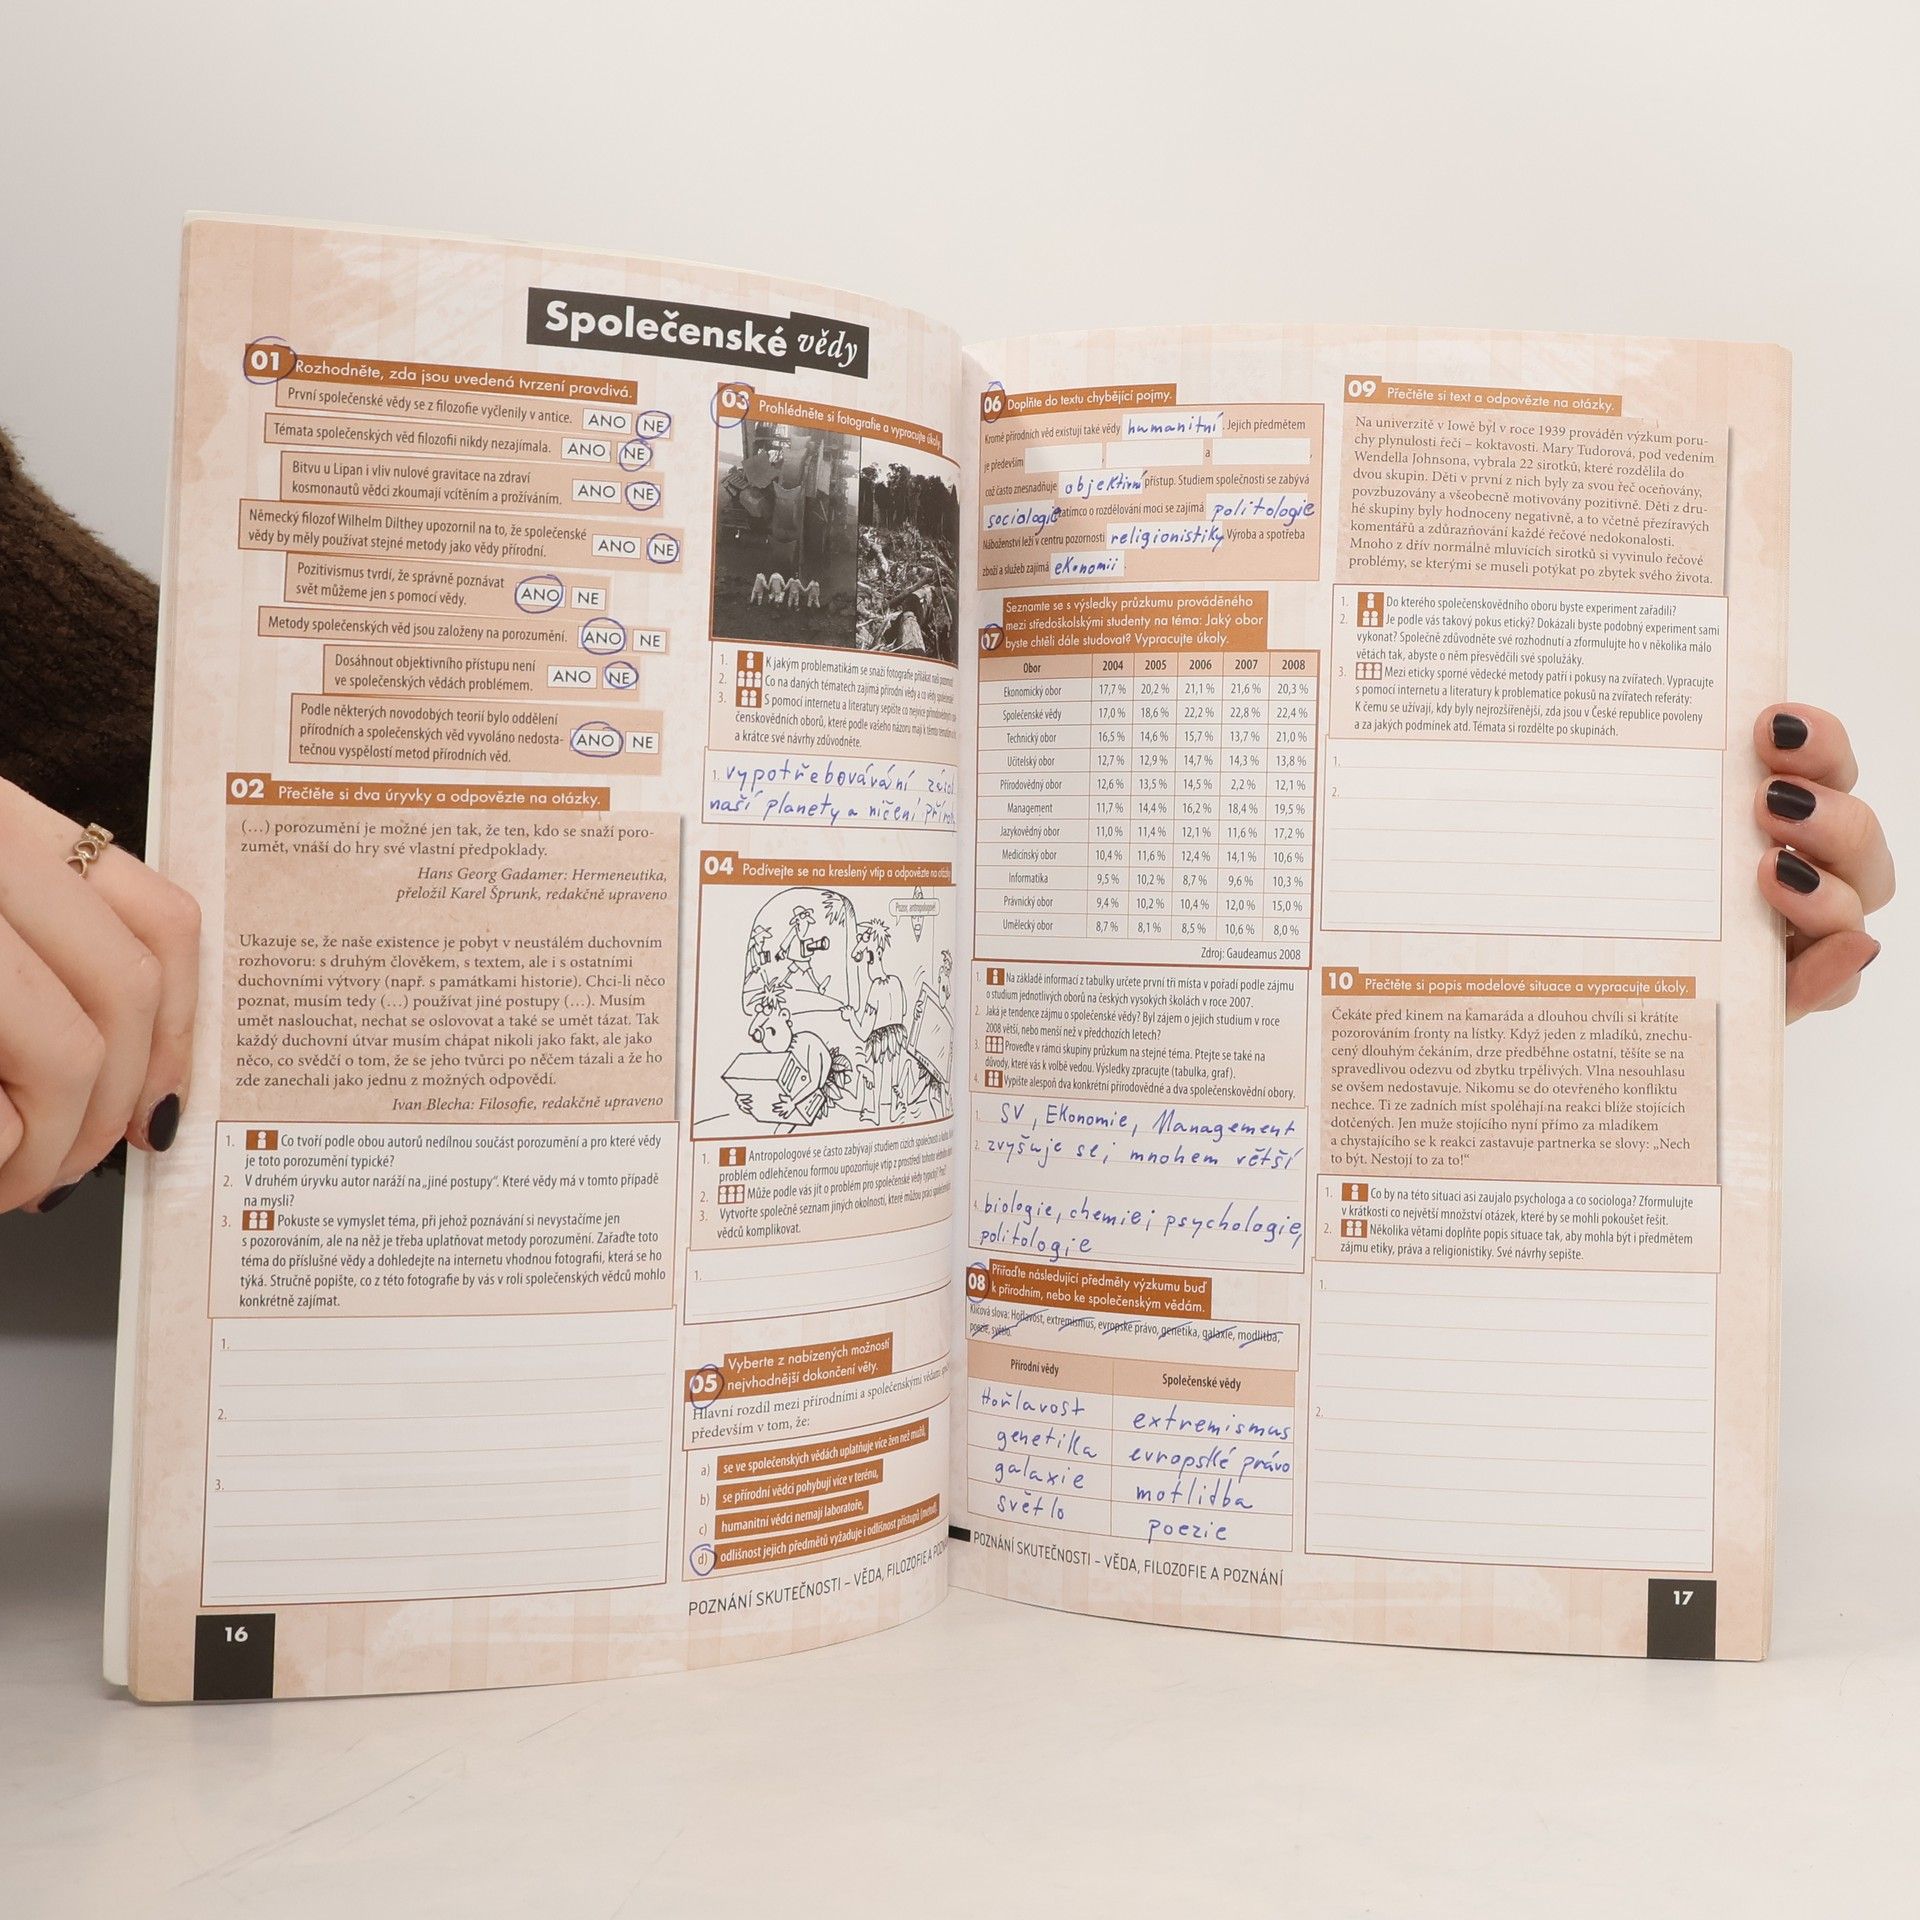 Společenské vědy
01 Rozhodněte, zda jsou uvedená tvrzení pravdivá.
První společenské vědy se z filozofie vyčlenily v antice. ANO NE
Témata společenských věd filozofii nikdy nezajímala. ANO NE
Bitvu u Lipan i vliv nulové gravitace na zdraví
kosmonautů vědci zkoumají vcítěním a prožíváním. ANO NE
Německý filozof Wilhelm Dilthey upozornil na to, že společenské
vědy by měly používat stejné metody jako vědy přírodní. ANO NE
Pozitivismus tvrdí, že správně poznávat
svět můžeme jen s pomocí vědy. ANO NE
Metody společenských věd jsou založeny na porozumění. ANO NE
Dosáhnout objektivního přístupu není
ve společenských vědách problémem. ANO NE
Podle některých novodobých teorií bylo oddělení
přírodních a společenských věd vyvoláno nedosta-
tečnou vyspělostí metod přírodních věd. ANO NE
02 Přečtěte si dva úryvky a odpovězte na otázky.
(...) porozumění je možné jen tak, že ten, kdo se snaží poro-
zumět, vnáší do hry své vlastní předpoklady.
Hans Georg Gadamer: Hermeneutika,
přeložil Karel Šprunk, redakčně upraveno
Ukazuje se, že naše existence je pobyt v neustálém duchovním
rozhovoru: s druhým člověkem, s textem, ale i s ostatními
duchovními výtvory (např. s památkami historie). Chci-li něco
poznat, musím tedy (...) používat jiné postupy (...). Musím
umět naslouchat, nechat se oslovovat a také se umět tázat. Tak
každý duchovní útvar musím chápat nikoli jako fakt, ale jako
něco, co svědčí o tom, že se jeho tvůrci po něčem tázali a že ho
zde zanechali jako jednu z možných odpovědí.
Ivan Blecha: Filosofie, redakčně upraveno
1. Co tvoří podle obou autorů nedílnou součást porozumění a pro které vědy
je toto porozumění typické?
2. V druhém úryvku autor naráží na „jiné postupy“. Které vědy má v tomto případě
na mysli?
3. Pokuste se vymyslet téma, při jehož poznávání si nevystačíme jen
s pozorováním, ale na něž je třeba uplatňovat metody porozumění. Zařaďte toto
téma do příslušné vědy a dohledejte na internetu vhodnou fotografii, která se ho
týká. Stručně popište, co z této fotografie by vás v roli společenských vědců mohlo
konkrétně zajímat.
1.
2.
3.
16
03 Prohlédněte si fotografie a vypracujte úkoly.
1. K jakým problematikám se snaží fotografie přilákat naši pozornost
2. Co na daných tématech zajímá přírodní vědy a co vědy společenské
3. S pomocí internetu a literatury sepište co nejvíce přírodovědných
čenskovědních oborů, které podle vašeho názoru mají k těmto tématům
a krátce své návrhy zdůvodněte.
1. vypotřebovávání
naší planety a ničení
04 Podívejte se na kreslený vtip a odpovězte na otázky
Pozor, antropologové!
1. Antropologové se často zabývají studiem cizích společností a kultur.
problém odlehčenou formou upozorňuje vtip z prostředí tohoto
2. Může podle vás jít o problém pro společenské vědy typický? Proč?
3. Vytvořte společně seznam jiných okolností, které můžou práci společenských
vědců komplikovat.
1.
05 Vyberte z nabízených možností
nejvhodnější dokončení věty.
Hlavní rozdíl mezi přírodními a společenskými vědami
především v tom, že:
a) se ve společenských vědách uplatňuje více žen než mužů,
b) se přírodní vědci pohybují více v terénu,
c) humanitní vědci nemají laboratoře,
d) odlišnost jejich předmětů vyžaduje i odlišnost přístupů (metod).
POZNÁNÍ SKUTEČNOSTI – VĚDA, FILOZOFIE A
06 Doplňte do textu chybějící pojmy.
Kromě přírodních věd existují také vědy humanitní. Jejich předmětem
je především , a ,
což často znesnadňuje objektivní přístup. Studiem společnosti se zabývá
sociologie zatímco o rozdělování moci se zajímá politologie
Náboženství leží v centru pozornosti religionistiky. Výroba a spotřeba
zboží a služeb zajímá ekonomii.
07 Seznamte se s výsledky průzkumu prováděného
mezi středoškolskými studenty na téma: Jaký obor
byste chtěli dále studovat? Vypracujte úkoly.
Obor 2004 2005 2006 2007 2008
Ekonomický obor 17,7 % 20,2 % 21,1 % 21,6 % 20,3 %
Společenské vědy 17,0 % 18,6 % 22,2 % 22,8 % 22,4 %
Technický obor 16,5 % 14,6 % 15,7 % 13,7 % 21,0 %
Učitelský obor 12,7 % 12,9 % 14,7 % 14,3 % 13,8 %
Přírodovědný obor 12,6 % 13,5 % 14,5 % 2,2 % 12,1 %
Management 11,7 % 14,4 % 16,2 % 18,4 % 19,5 %
Jazykovědný obor 11,0 % 11,4 % 12,1 % 11,6 % 17,2 %
Medicínský obor 10,4 % 11,6 % 12,4 % 14,1 % 10,6 %
Informatika 9,5 % 10,2 % 8,7 % 9,6 % 10,3 %
Právnický obor 9,4 % 10,2 % 10,4 % 12,0 % 15,0 %
Umělecký obor 8,7 % 8,1 % 8,5 % 10,6 % 8,0 %
Zdroj: Gaudeamus 2008
1. Na základě informací z tabulky určete první tři místa v pořadí podle zájmu
o studium jednotlivých oborů na českých vysokých školách v roce 2007.
2. Jaká je tendence zájmu o společenské vědy? Byl zájem o jejich studium v roce
2008 větší, nebo menší než v předchozích letech?
3. Proveďte v rámci skupiny průzkum na stejné téma. Ptejte se také na
důvody, které vás k volbě vedou. Výsledky zpracujte (tabulka, graf).
4. Vypište alespoň dva konkrétní přírodovědné a dva společenskovědní obory.
1. SV, Ekonomie, Management
2. zvyšuje se; mnohem větší
4. biologie, chemie; psychologie,
politologie
08 Přiřaďte následující předměty výzkumu buď
k přírodním, nebo ke společenským vědám.
Klíčová slova: Hořlavost, extremismus, evropské právo, genetika, galaxie, modlitba,
poezie, světlo.
Přírodní vědy Společenské vědy
Hořlavost extremismus
genetika evropské právo
galaxie motlidba
světlo poezie
POZNÁNÍ SKUTEČNOSTI – VĚDA, FILOZOFIE A POZNÁNÍ
09 Přečtěte si text a odpovězte na otázky.
Na univerzitě v Iowě byl v roce 1939 prováděn výzkum poru-
chy plynulosti řeči – koktavosti. Mary Tudorová, pod vedením
Wendella Johnsona, vybrala 22 sirotků, které rozdělila do
dvou skupin. Děti v první z nich byly za svou řeč oceňovány,
povzbuzovány a všeobecně motivovány pozitivně. Děti z dru-
hé skupiny byly hodnoceny negativně, a to včetně přezíravých
komentářů a zdůrazňování každé řečové nedokonalosti.
Mnoho z dřív normálně mluvících sirotků si vyvinulo řečové
problémy, se kterými se museli potýkat po zbytek svého života.
1. Do kterého společenskovědního oboru byste experiment zařadili?
2. Je podle vás takový pokus etický? Dokázali byste podobný experiment sami
vykonat? Společně zdůvodněte své rozhodnutí a zformulujte ho v několika málo
větách tak, abyste o něm přesvědčili své spolužáky.
3. Mezi eticky sporné vědecké metody patří i pokusy na zvířatech. Vypracujte
s pomocí internetu a literatury k problematice pokusů na zvířatech referáty:
K čemu se užívají, kdy byly nejrozšířenější, zda jsou v České republice povoleny
a za jakých podmínek atd. Témata si rozdělte po skupinách.
1.
2.
10 Přečtěte si popis modelové situace a vypracujte úkoly.
Čekáte před kinem na kamaráda a dlouhou chvíli si krátíte
pozorováním fronty na lístky. Když jeden z mladíků, znechu-
cený dlouhým čekáním, drze předběhne ostatní, těšíte se na
spravedlivou odezvu od zbytku trpělivých. Vlna nesouhlasu
se ovšem nedostavuje. Nikomu se do otevřeného konfliktu
nechce. Ti ze zadních míst spoléhají na reakci blíže stojících
dotčených. Jen muže stojícího nyní přímo za mladíkem
a chystajícího se k reakci zastavuje partnerka se slovy: „Nech
to být. Nestojí to za to!“
1. Co by na této situaci asi zaujalo psychologa a co sociologa? Zformulujte
v krátkosti co největší množství otázek, které by se mohli pokoušet řešit.
2. Několika větami doplňte popis situace tak, aby mohla být i předmětem
zájmu etiky, práva a religionistiky. Své návrhy sepište.
1.
2.
17